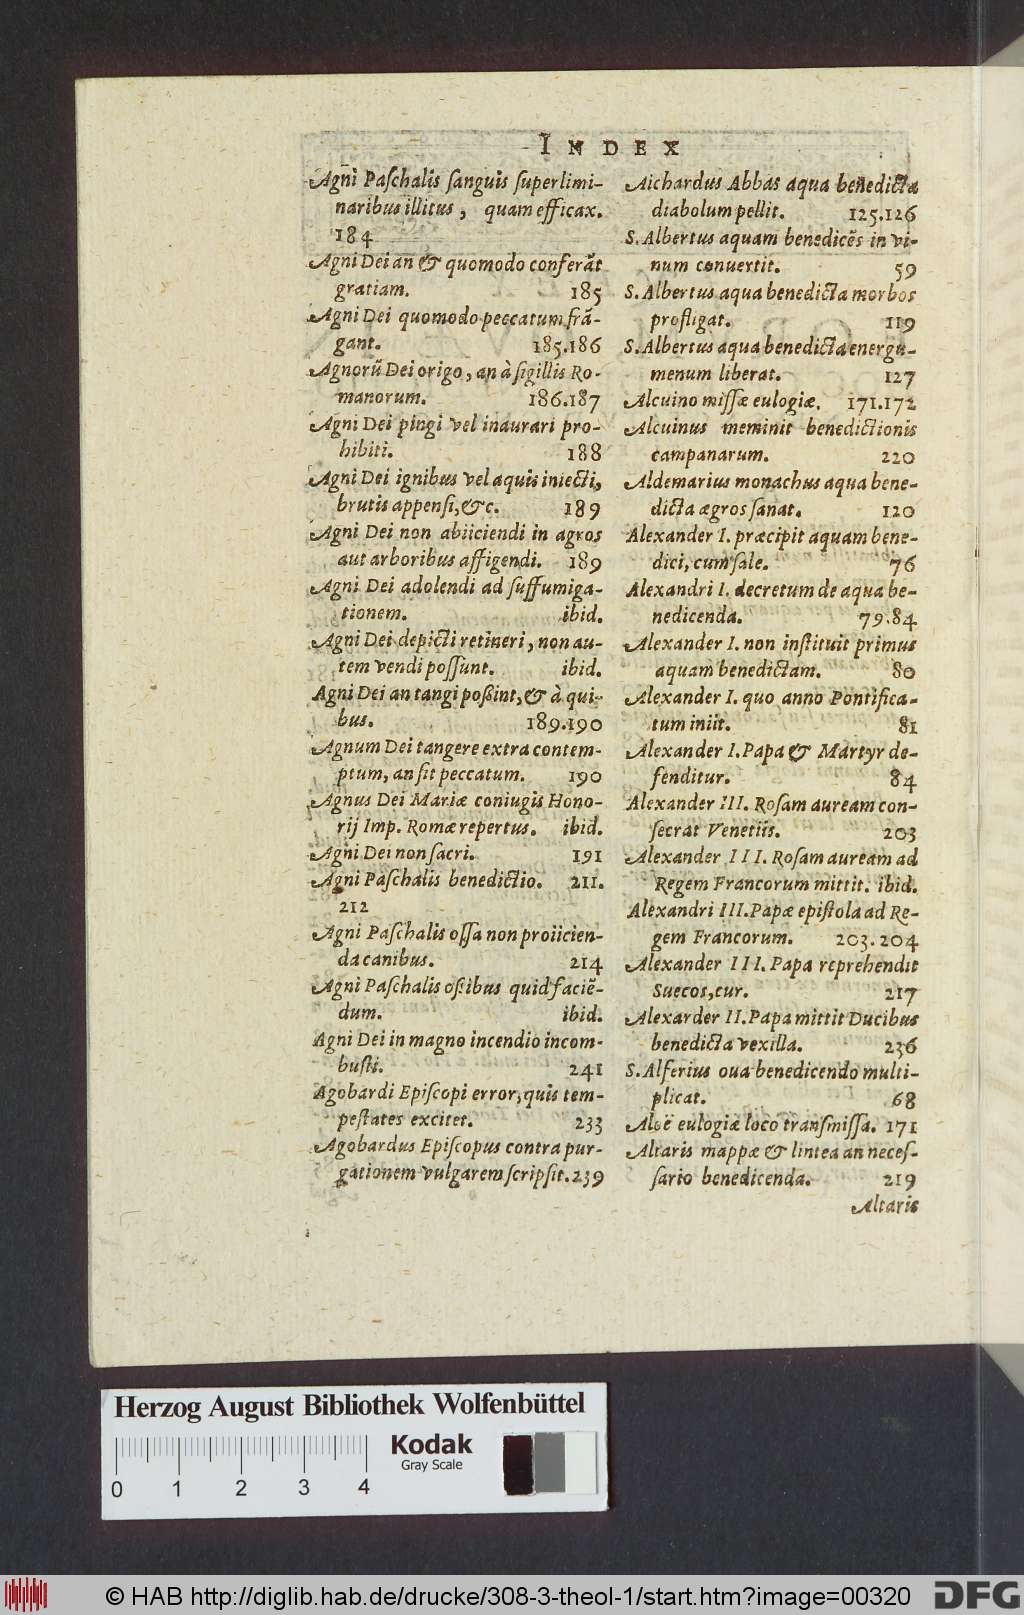 INDEX
Agni Paſchalis ſanguis ſuperlimi-
naribus illitus, quam efficax.
184
Agni Dei an & quomodo conferāt
gratiam. 185
Agni Dei quomodo peccatum frā-
gant. 185.186
Agnorū Dei origo, an à ſigillis Ro-
manorum. 186.187
Agni Dei pingi vel inaurari pro-
hibiti. 188
Agni Dei ignibus vel aquis iniecti,
brutis appenſi, &c. 189
Agni Dei non abiiciendi in agros
aut arboribus affigendi. 189
Agni Dei adolendi ad ſuffumiga-
tionem. ibid.
Agni Dei depicti retineri, non au-
tem vendi poſſunt. ibid.
Agni Dei an tangi poßint, & à qui-
bus. 189.190
Agnum Dei tangere extra contem-
ptum, an ſit peccatum. 190
Agnus Dei Mariæ coniugis Hono-
rij Imp. Romæ repertus. ibid.
Agni Dei non ſacri. 191
Agni Paſchalis benedictio. 211.
212
Agni Paſchalis oſſa non proiicien-
da canibus. 214
Agni Paſchalis oßibus quid faciē-
dum. ibid.
Agni Dei in magno incendio incom-
buſti. 241
Agobardi Epiſcopi error, quis tem-
peſtates excitet. 233
Agobardus Epiſcopus contra pur-
gationem vulgarem ſcripſit. 239
Aichardus Abbas aqua benedicta
diabolum pellit. 125.126
S. Albertus aquam benedicēs in vi-
num conuertit. 59
S. Albertus aqua benedicta morbos
profligat. 119
S. Albertus aqua benedicta energu-
menum liberat. 127
Alcuino miſſæ eulogiæ. 171.172
Alcuinus meminit benedictionis
campanarum. 220
Aldemarius monachus aqua bene-
dicta ægros ſanat. 120
Alexander I. præcipit aquam bene-
dici, cum ſale. 76
Alexandri I. decretum de aqua be-
nedicenda. 79.84
Alexander I. non inſtituit primus
aquam benedictam. 80
Alexander I. quo anno Pontifica-
tum iniit. 81
Alexander I. Papa & Martyr de-
fenditur. 84
Alexander III. Roſam auream con-
ſecrat Venetiis. 203
Alexander III. Roſam auream ad
Regem Francorum mittit. ibid.
Alexandri III. Papæ epiſtola ad Re-
gem Francorum. 203.204
Alexander III. Papa reprehendit
Suecos, cur. 217
Alexarder II. Papa mittit Ducibus
benedicta vexilla. 236
S. Alferius oua benedicendo multi-
plicat. 68
Aloë eulogiæ loco tranſmiſſa. 171
Altaris mappæ & lintea an neceſ-
ſario benedicenda. 219
Altaris
Herzog August Bibliothek Wolfenbüttel
Kodak
Gray Scale
0 1 2 3 4
© HAB http://diglib.hab.de/drucke/308-3-theol-1/start.htm?image=00320
DFG